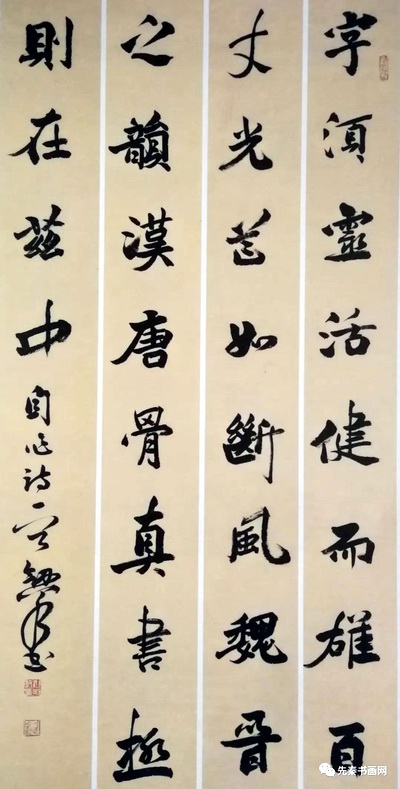 字須靈活健而雄百
丈光芒如斷風魏晉
之韻漢唐骨真書極
則在茲中
自作詩一首 書
先秦书画网